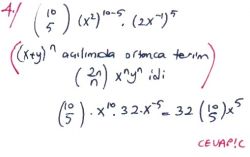 4-) (10 5) (x²)^10-5 . (2x^-1)^5
(x+y)^n açılımda ortanca terim
(2n n) x^n y^n idi
(10 5) . x^10 . 32 . x^-5 = 32 (10 5) x^5
CEVAP: C